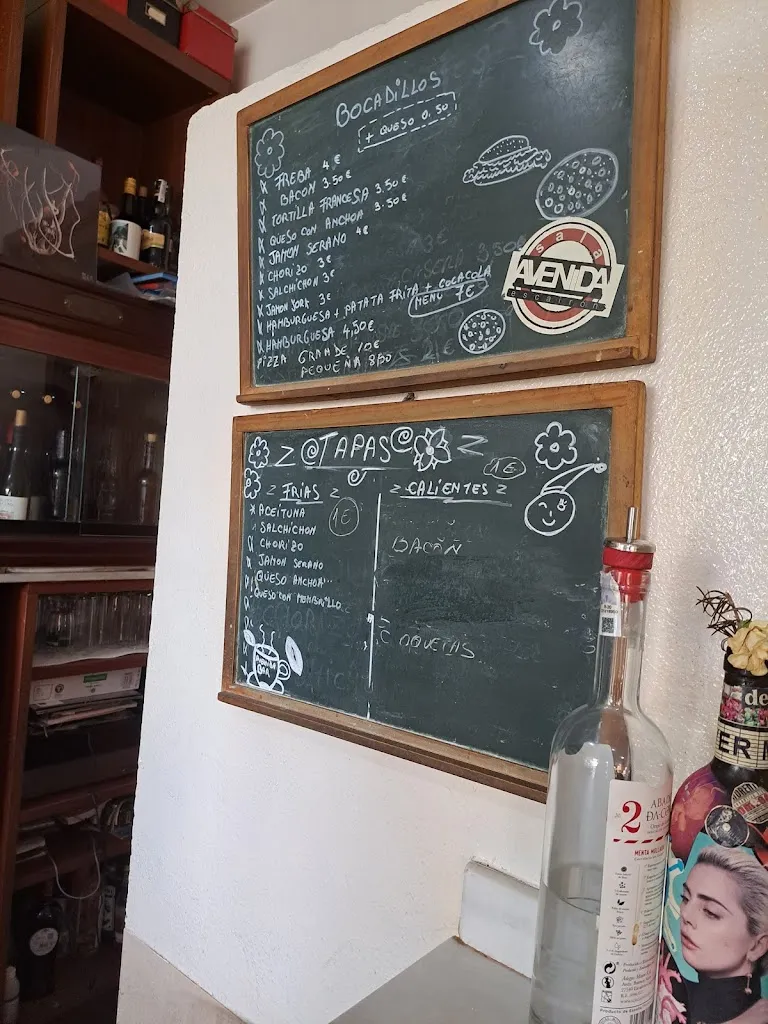 BOCADILLOS
+ QUESO 0,50
X FREBA 4€
X BACON 3.50€
X TORTILLA FRANCESA 3.50€
X QUESO CON ANCHOA 3.50€
X JAMON SERANO 4€
X CHORIZO 3€
X SALCHICHON 3€
X JAMON YORK 3€
X HAMBURGUESA + PATATA FRITA + COCACOLA
MENU 7€
X HAMBURGUESA 4,50€
PIZZA GRANDE 10€
PEQUEÑA 850
sala
AVENIDA
escairón
TAPAS
1€
FRIAS
1€
* ACEITUNA
SALCHICHON
CHORIZO
JAMON SERANO
QUESO ANCHOA
QUESO CON MEMBRILLO
CALIENTES
BACON
OQUETAS
BAR
2
MENTA
de
ER